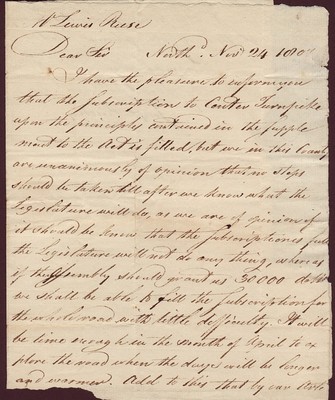 Mr Lewis Reese
Dear Sir North. Novr 24 180
I have the pleasure to inform you
that the Subscription to Center Turnpike
upon the principles contained in the supple
ment to the Act is filled, but we in this County
are unanimously of opinion that no steps
should be taken till after we know what the
Legislature will do, as we are of opinion if
it should be know that the Subscription is full
the Legislature will not do any thing, where as
if the Assembly should grant us 30000 dollars
we shall be able to fill the Subscription for
the whole road with little difficulty. It will
be time enough in the month of April to ex
plore the road when the days will be longer
and warmer. Add to this that by our